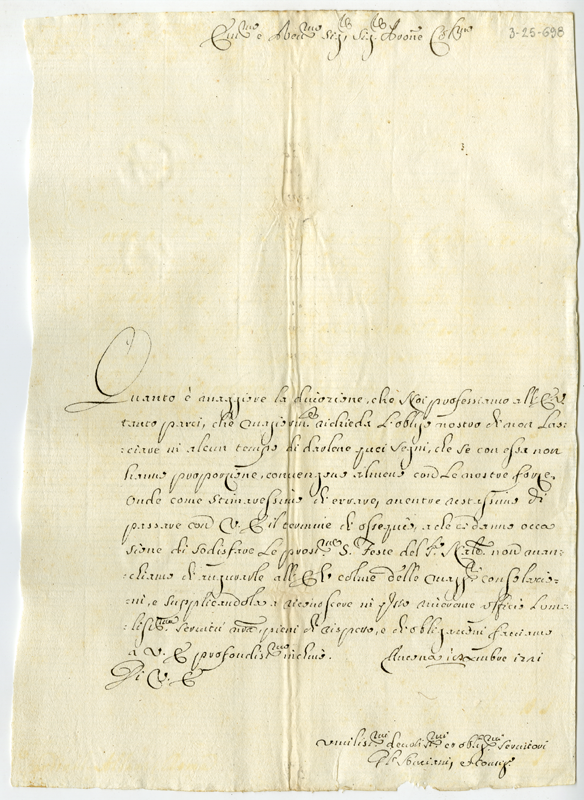 Em.mo e Rev.mo Sig.r Sig.r Prone Col.mo
3-25-698
Quanto è maggiore la divozione, che Noi professiamo all'E.V.
tanto parci, che maggiorm.te richieda l'obligo nostro di non las=
=ciare in alcun tempo di darlene quei segni, che se con essa non
hanno proporzione, convengono almeno con le nostre forze.
Onde come stimaressimo di errare, mentre
passare con V. E. il termine di ossequio, a che ci danno occa
sione di sodisfare le pross.me S. Feste del S. Natale non man=
=chiamo di augurarle all'E.V. colme delle magg.ri consolazio=
=ni, e supplicandola a riconoscere in q.sto riverente officio l'um=
=iliss.ma servitù n.ra, pieni di rispetto, e di obligazioni facciamo
à V. E. profondiss.mo inchino.
Di V. E.
umiliss.mi devotiss.mi et oblig.mi servitori